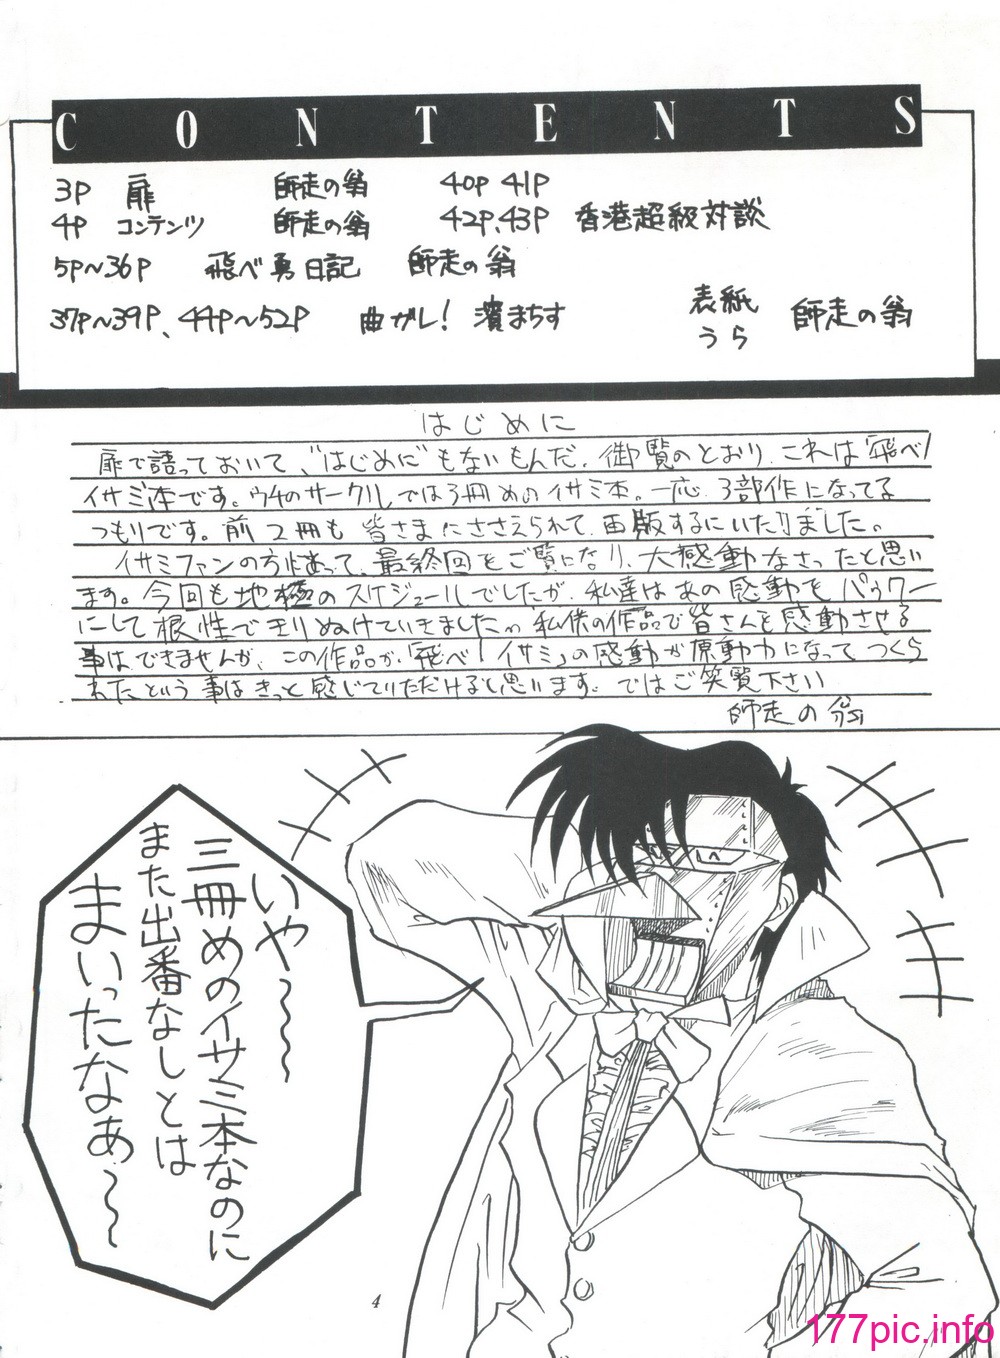 CONTENTS
3P 扉 師走の翁 40P 41P
4P コンテンツ 師走の翁 42P、43P 香港超級対談
5P~36P 飛べ勇日記 師走の翁
37P~39P、44P~52P 曲がれ! 濱まちす
表紙
うら 師走の翁
はじめに
扉で語っておいて、"はじめに"もないもんだ。御覧のとおり、これは「飛べ!
イサミ」本です。ウチのサークルでは3冊めのイサミ本。一応、3部作になってる
つもりです。前2冊も皆さまにささえられて、再販するにいたりました。
イサミファンの方はあって、最終回をご覧になり、大感動なさったと思い
ます。今回も地極のスケジュールでしたが、私達はあの感動をパゥワー
にして根性できりぬけていきました。私供の作品で皆さんを感動させる
事はできませんが、この作品が「飛べ!イサミ」の感動が原動力になってつくら
れたという事はきっと感じていただけると思います。ではご笑覧下さい
師走の翁
いや~
三冊めのイサミ本なのに
また出番なしとは
まいったなあ~
4
177pic.info